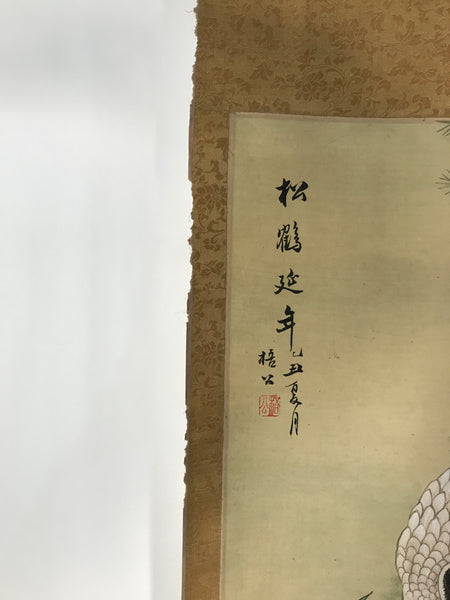 松鶴延年
乙丑夏月
梧公